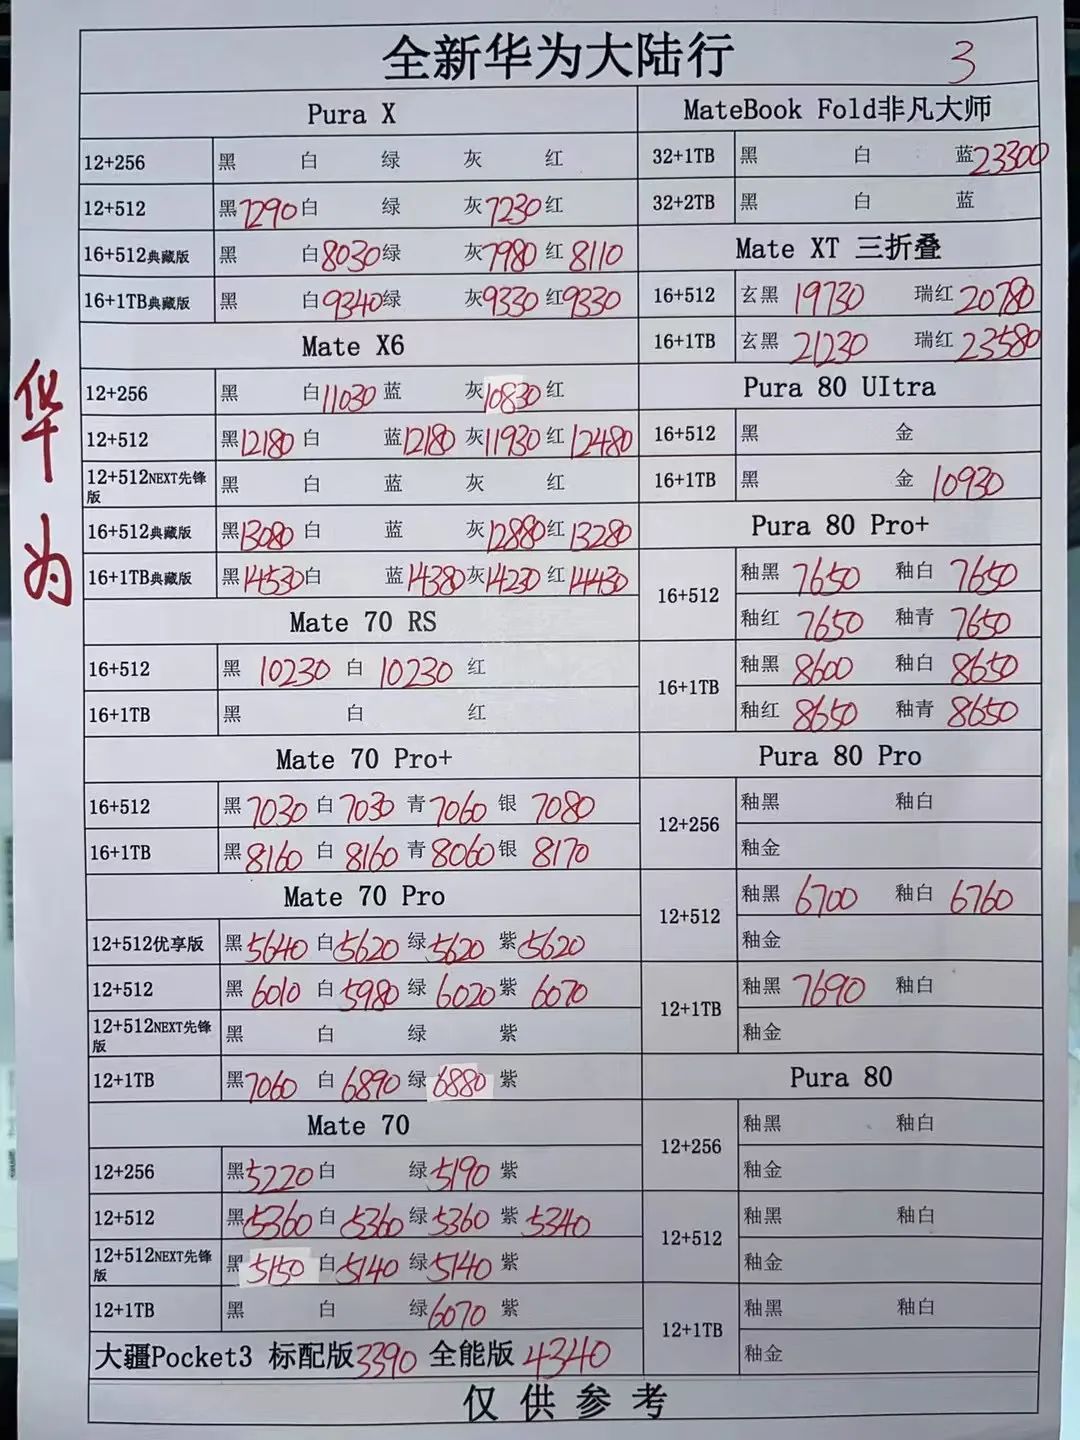 全新华为大陆行 3
华为
Pura X
12+256 黑 白 绿 灰 红
12+512 黑7290 白 绿 灰7230 红
16+512典藏版 黑 白8030 绿 灰7980 红8110
16+1TB典藏版 黑 白9340 绿 灰9330 红9330
Mate X6
12+256 黑 白11030 蓝 灰10830 红
12+512 黑12180 白 蓝12180 灰11930 红12480
12+512NEXT先锋版 黑 白 蓝 灰 红
16+512典藏版 黑13080 白 蓝 灰12880 红13280
16+1TB典藏版 黑14530 白 蓝14380 灰14230 红14430
Mate 70 RS
16+512 黑 10230 白 10230 红
16+1TB 黑 白 红
Mate 70 Pro+
16+512 黑7030 白7030 青7060 银7080
16+1TB 黑8160 白8160 青8060 银8170
Mate 70 Pro
12+512优享版 黑5640 白5620 绿5620 紫5620
12+512 黑6010 白5980 绿6020 紫6070
12+512NEXT先锋版 黑 白 绿 紫
12+1TB 黑7060 白6890 绿6880 紫
Mate 70
12+256 黑5220 白 绿5190 紫
12+512 黑5360 白5360 绿5360 紫5340
12+512NEXT先锋版 黑5150 白5140 绿5140 紫
12+1TB 黑 白 绿6070 紫
大疆Pocket3 标配版3390 全能版4340
MateBook Fold非凡大师
32+1TB 黑 白 蓝23300
32+2TB 黑 白 蓝
Mate XT 三折叠
16+512 玄黑 19730 瑞红20780
16+1TB 玄黑 21230 瑞红23580
Pura 80 UItra
16+512 黑 金
16+1TB 黑 金 10930
Pura 80 Pro+
16+512 釉黑 7650 釉白 7650
釉红 7650 釉青 7650
16+1TB 釉黑 8600 釉白 8650
釉红 8650 釉青 8650
Pura 80 Pro
12+256 釉黑 釉白
釉金
12+512 釉黑 6700 釉白 6760
釉金
12+1TB 釉黑 7690 釉白
釉金
Pura 80
12+256 釉黑 釉白
釉金
12+512 釉黑 釉白
釉金
12+1TB 釉黑 釉白
釉金
仅供参考